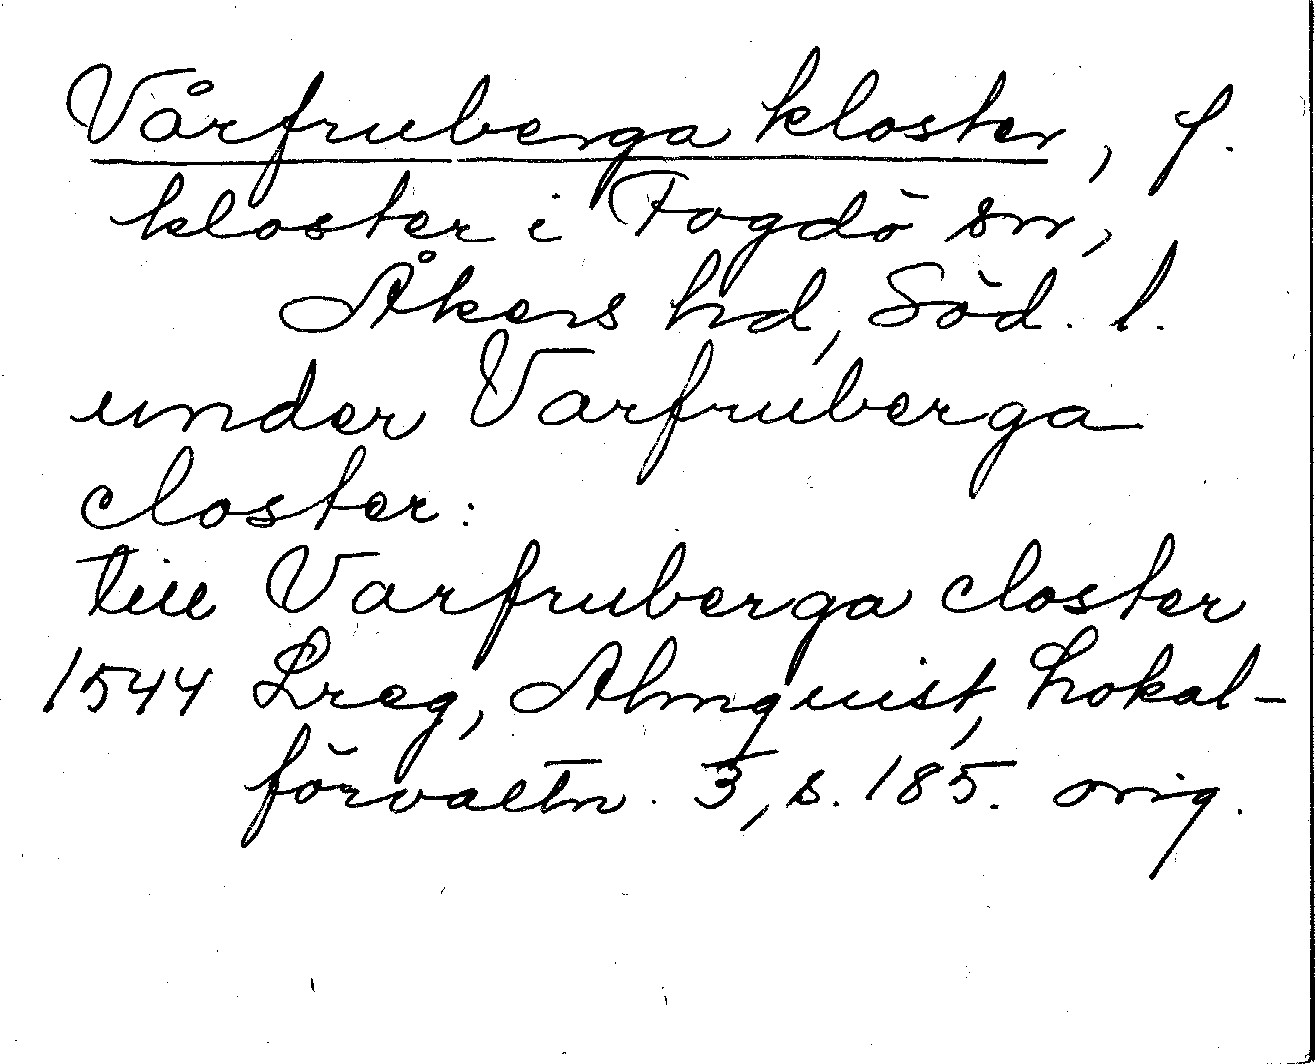 Vårfruberga kloster, f.
kloster i Fogdö sn,
Åkers hd, Söd. l.
under Varfruberga
closter:
till Varfruberga closter
1544 Lreg, Almquist, Lokal-
förvaltn. 3, s. 185. orig.